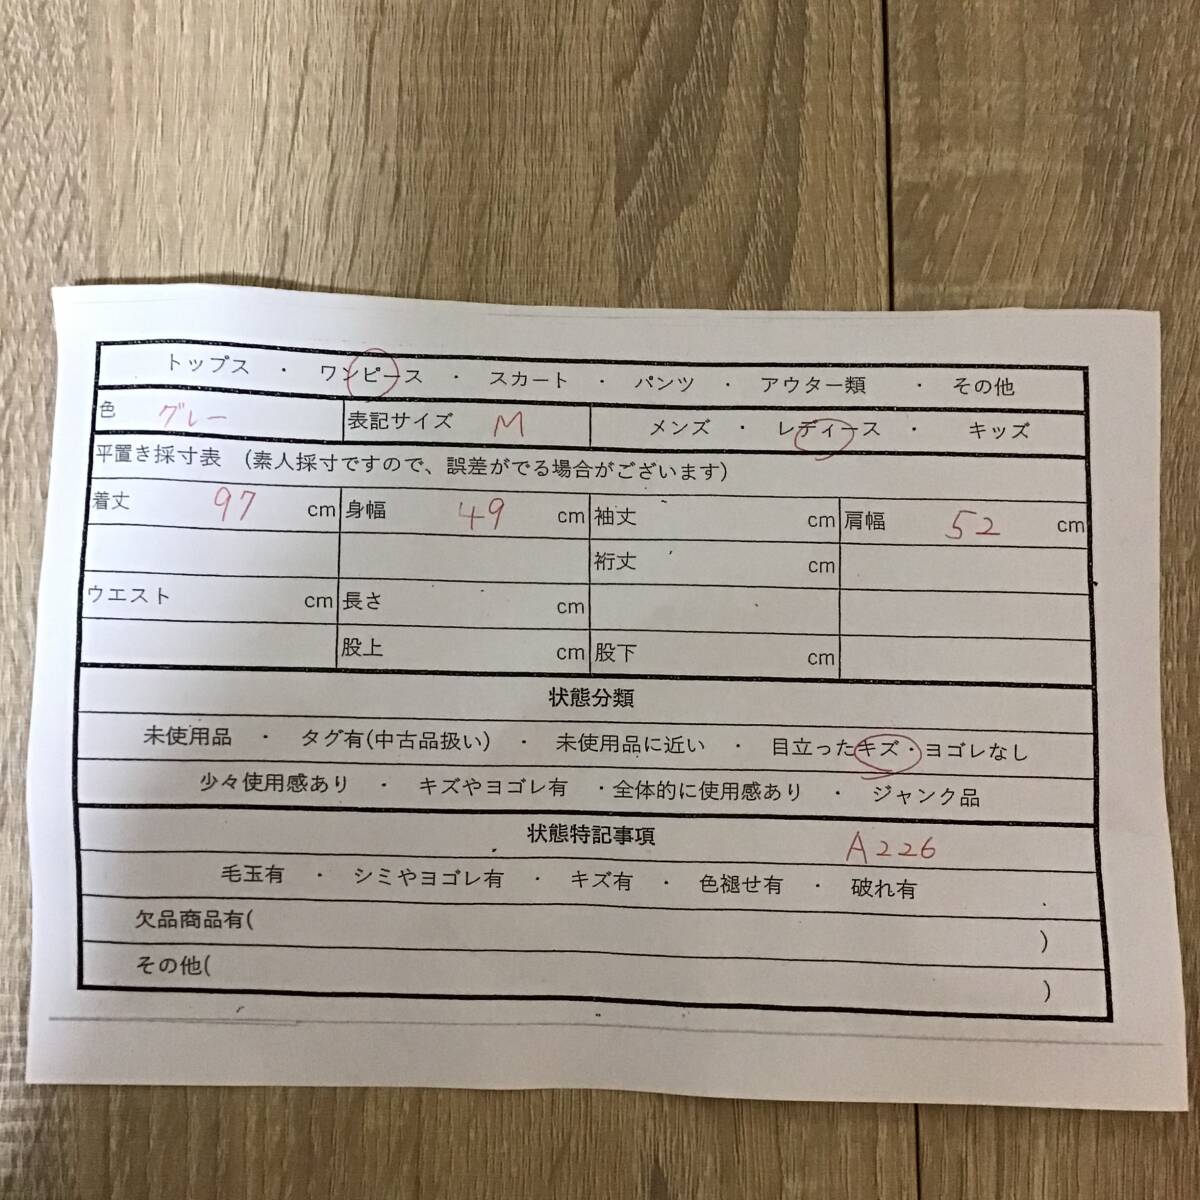 トップス ・ ワンピース ・ スカート ・ パンツ ・ アウター類 ・ その他
色 グレー 表記サイズ M メンズ ・ レディース ・ キッズ
平置き採寸表 (素人採寸ですので、誤差がでる場合がございます)
着丈 97 cm 身幅 49 cm 袖丈 cm 肩幅 52 cm
裄丈 cm
ウエスト cm 長さ cm
股上 cm 股下 cm
状態分類
未使用品 ・ タグ有(中古品扱い) ・ 未使用品に近い ・ 目立ったキズ・ヨゴレなし
少々使用感あり ・ キズやヨゴレ有 ・全体的に使用感あり ・ ジャンク品
状態特記事項 A226
毛玉有 ・ シミやヨゴレ有 ・ キズ有 ・ 色褪せ有 ・ 破れ有
欠品商品有( )
その他( )